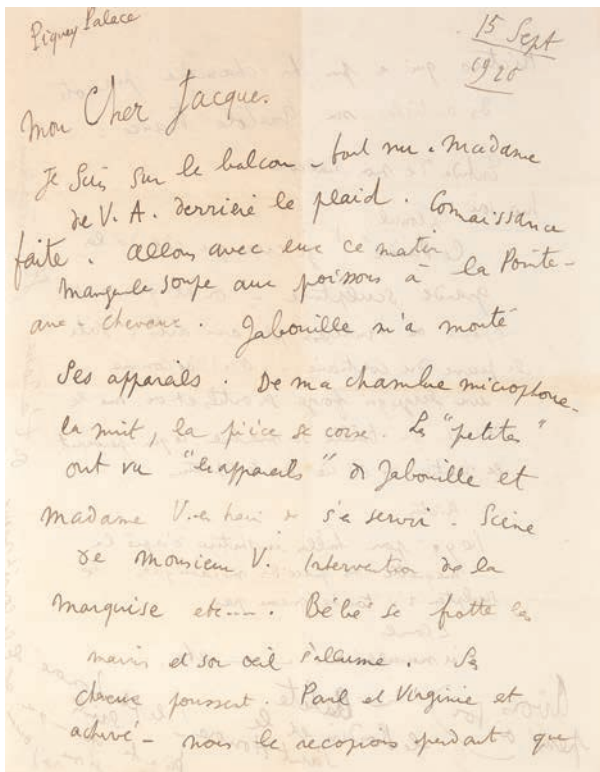 Piquey Palace
15 Sept
1920
Mon Cher Jacques
Je suis sur le balcon - tout nu. Madame
de V. A. derrière le plaid. Connaissance
faite. Allons avec eux ce matin
manger le soupe aux poissons à la Pointe-
aux-chevaux. Jabouille m'a montré
ses appareils. De ma chambre microphone -
la nuit, la pièce se corse. Les "petites"
ont vu "les appareils" de Jabouille et
Madame V. en train de s'en servir. Scène
de Monsieur V. Intervention de la
marquise etc.... Bébé se frotte les
mains et son œil s'allume. Ses
cheveux poussent. Paul et Virginie est
achevé - nous le recopions pendant que